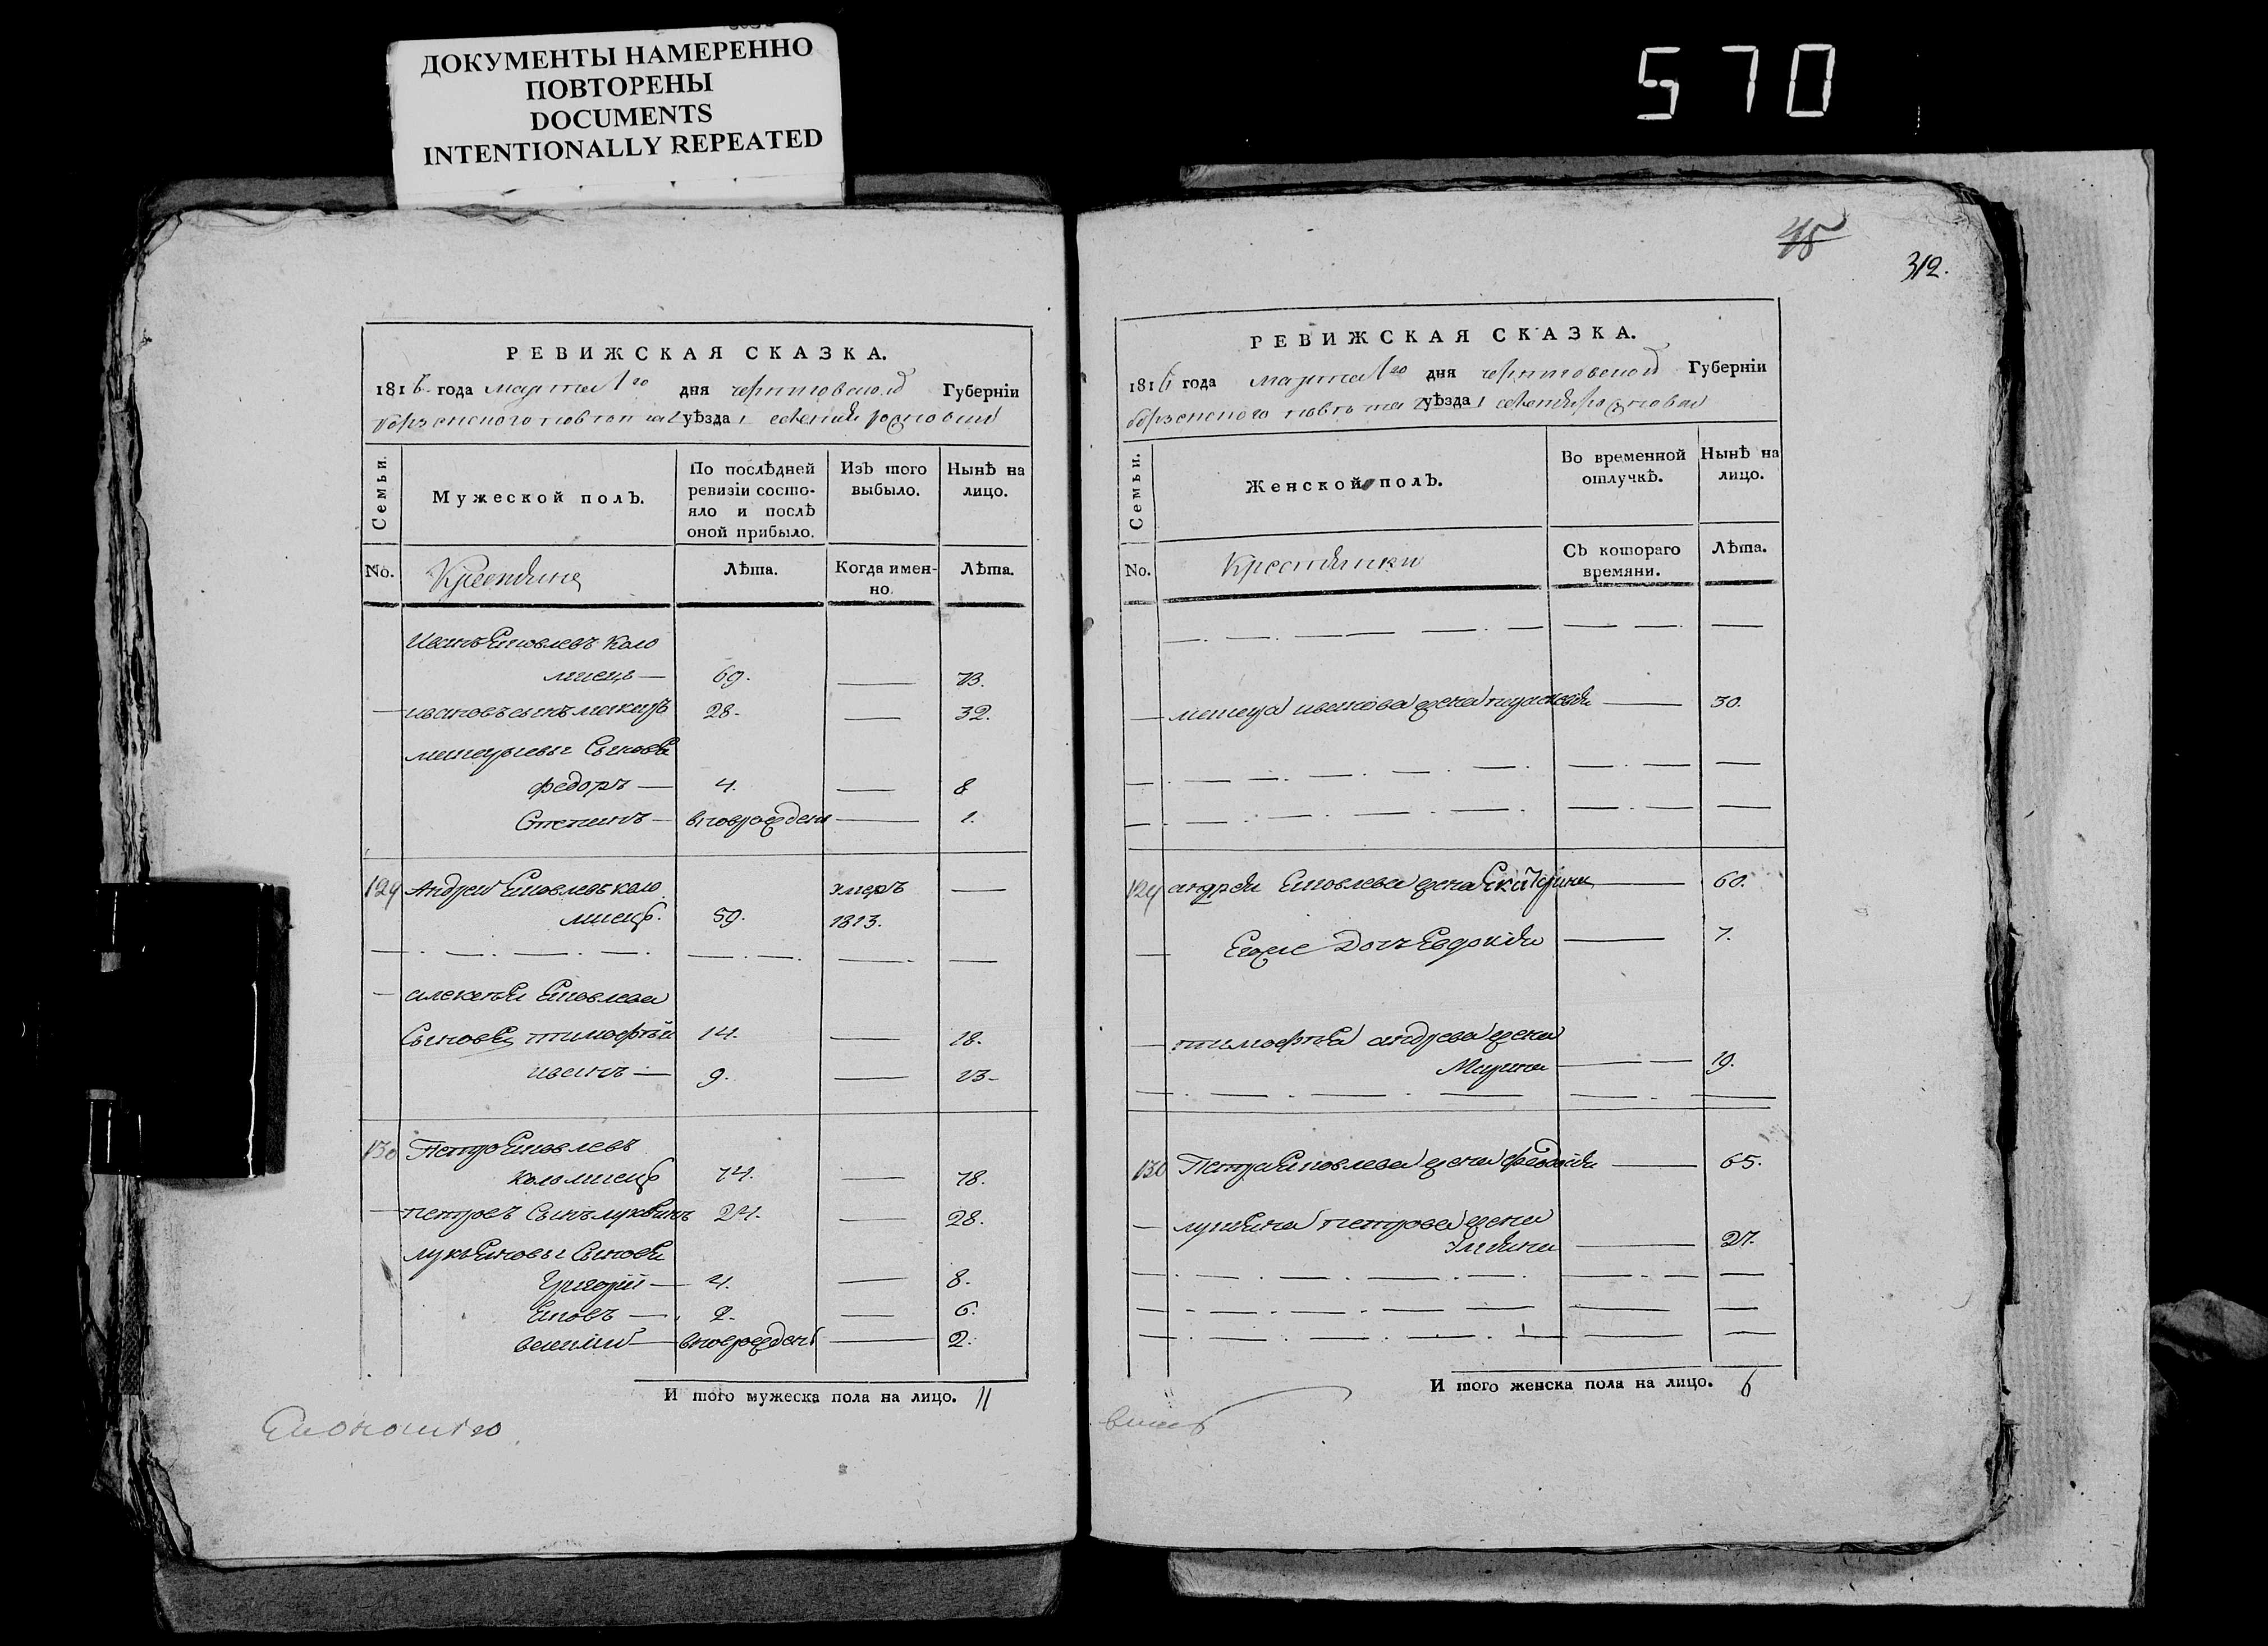 ДОКУМЕНТЫ НАМЕРЕННО
ПОВТОРЕНЫ
DOCUMENTS
INTENTIONALLY REPEATED
570
РЕВИЖСКАЯ СКАЗКА.
1816 года марта 1го дня черниговской Губерніи
борзенского повета уѣзда
Семьи.
Мужеской полъ.
По послѣдней ревизіи состо-
яло и послѣ
оной прибыло.
Изъ того
выбыло.
Нынѣ на
лицо.
No.
Крестьяне
Лѣта.
Когда имен-
но.
Лѣта.
Иванъ Яковлевъ Коло
миецъ — 69. — 73.
— ивановъ сынъ 28. — 32.
сыновья
федоръ — 4. — 8
Степанъ — вновь рожденъ — 1.
129 Андрей Яковлевъ коло умеръ —
миецъ. 59. 1813.
Яковлева
Сыновья тимофѣй 14. — 18.
иванъ — 9. — 13 —
130 Петро Яковлевъ
Коломиецъ 74. — 78.
— петровъ Сынъ лукьянъ 24. — 28.
лукьяновы Сыновья
Григорій — 4. — 8.
Яковъ — 2. — 6.
василий — вновь рожденъ — 2.
И того мужеска пола на лицо. 11
45
312.
РЕВИЖСКАЯ СКАЗКА.
1816 года марта 1го дня черниговской Губерніи
борзенского повета уѣзда
Семьи.
Женской полъ.
Во временной
отлучкѣ.
Нынѣ на
лицо.
No.
Крестьянки
Съ котораго
времяни.
Лѣта.
— иванова жена — 30.
129 андрея Яковлева жена Екатерина — 60.
— Егоже Дочь Евдокія — 7.
— тимофѣя андреева жена
Марина — 19.
130 Петра Яковлева жена феодосія — 65.
— лукьяна петрова жена
Ульяна — 27.
И того женска пола на лицо. 6